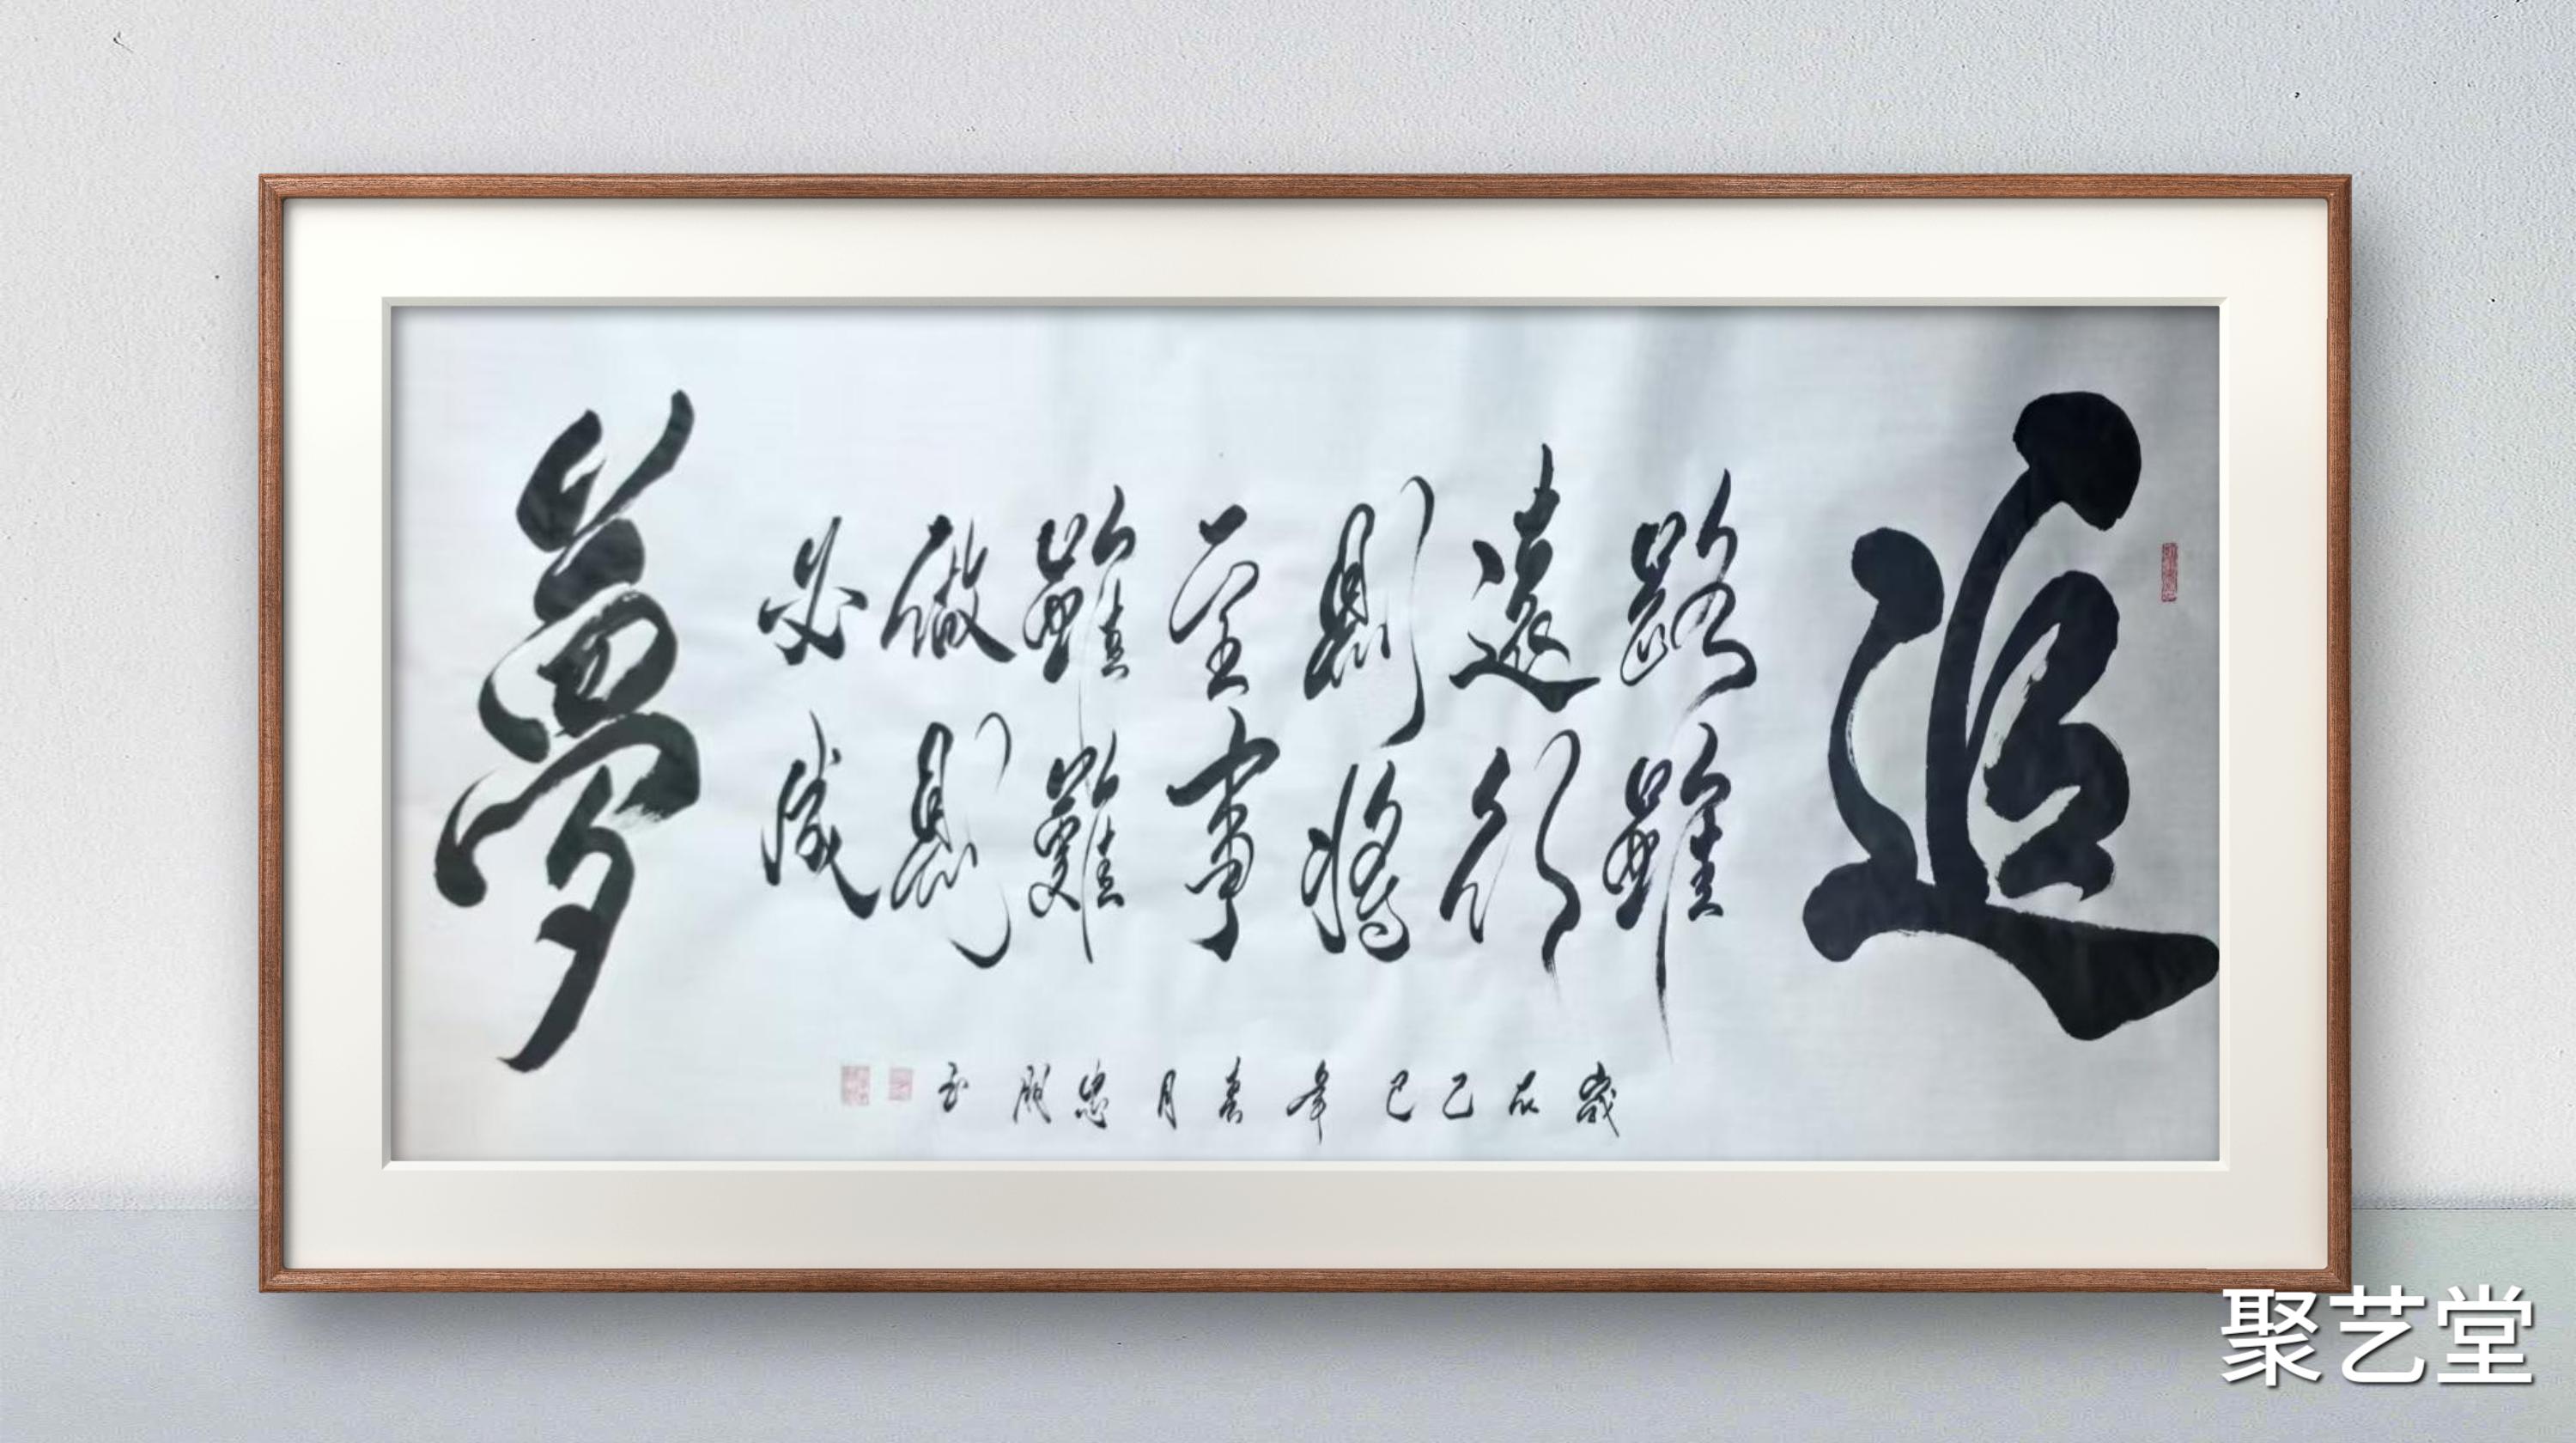 追
路雖
遠行
則將
至事
雖難
做則
必成
夢
歲在乙巳年春月忠書
聚艺堂